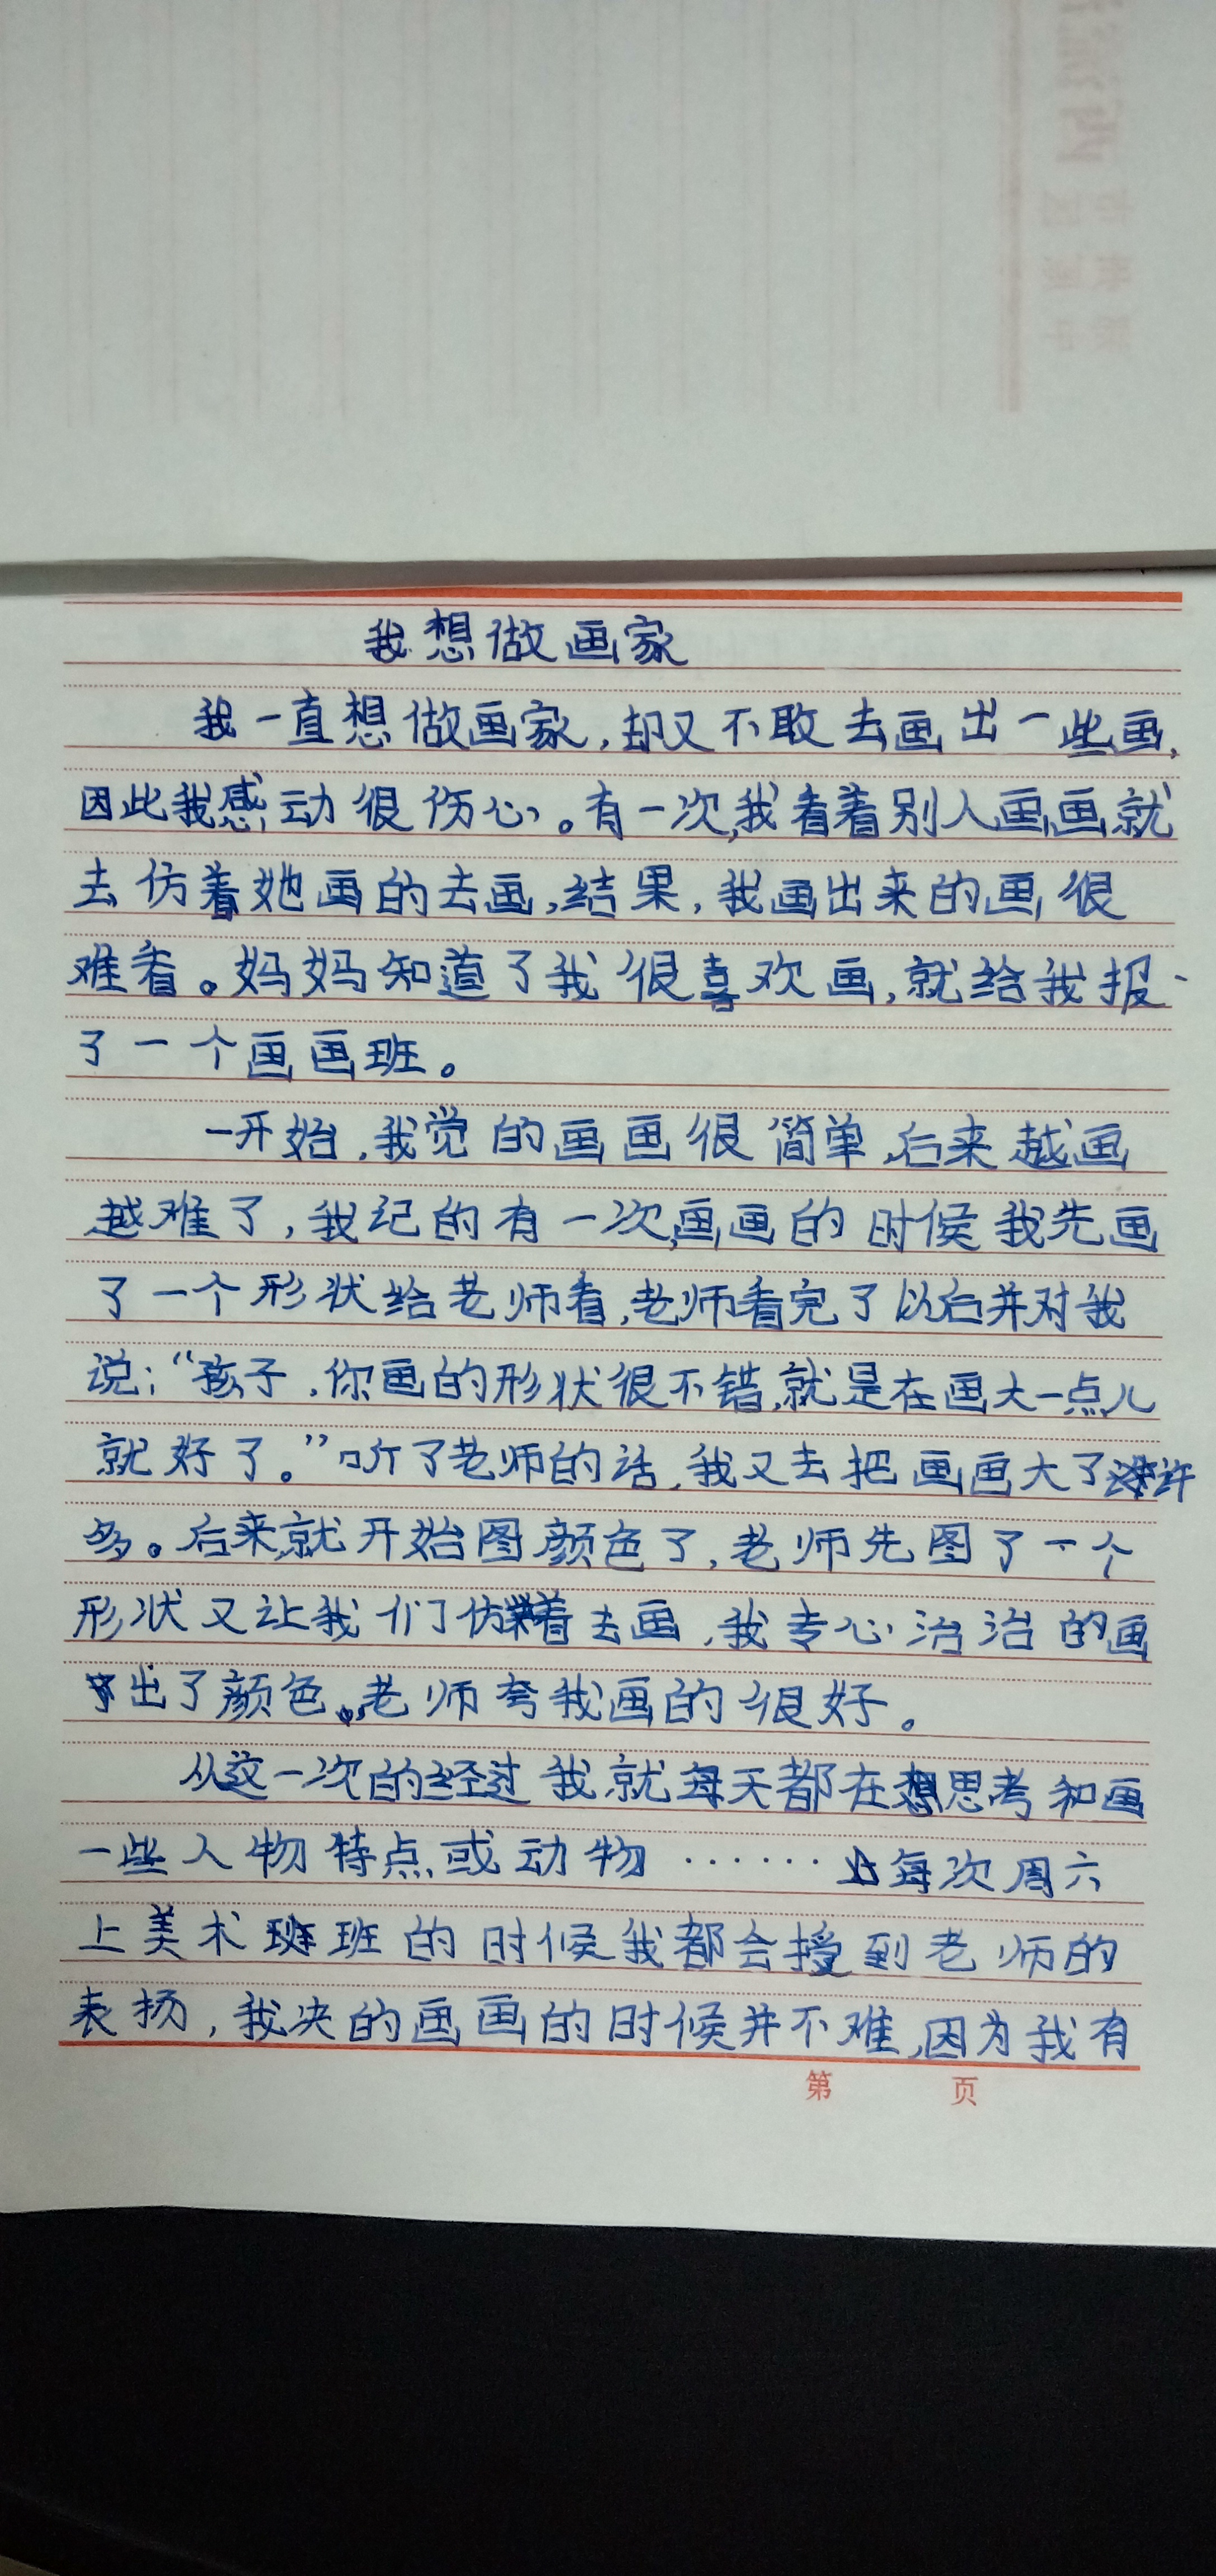 我想做画家
我一直想做画家,却又不敢去画出一些画,
因此我感动很伤心。有一次,我看着别人画画就
去仿着她画的去画,结果,我画出来的画很
难看。妈妈知道了我很喜欢画,就给我报
了一个画画班。
一开始,我觉的画画很简单,后来越画
越难了,我纪的有一次,画画的时候我先画
了一个形状给老师看,老师看完了以后并对我
说:“孩子,你画的形状很不错,就是在画大一点儿
就好了。”听了老师的话,我又去把画画大了许
多。后来,就开始图颜色了,老师先图了一个
形状又让我们仿着去画,我专心治治的画
出了颜色。老师夸我画的很好。
从这一次的经过我就每天都在思考和画
一些人物特点或动物······每次周六
上美术班的时候我都会授到老师的
表扬,我决的画画的时候并不难,因为我有
第 页